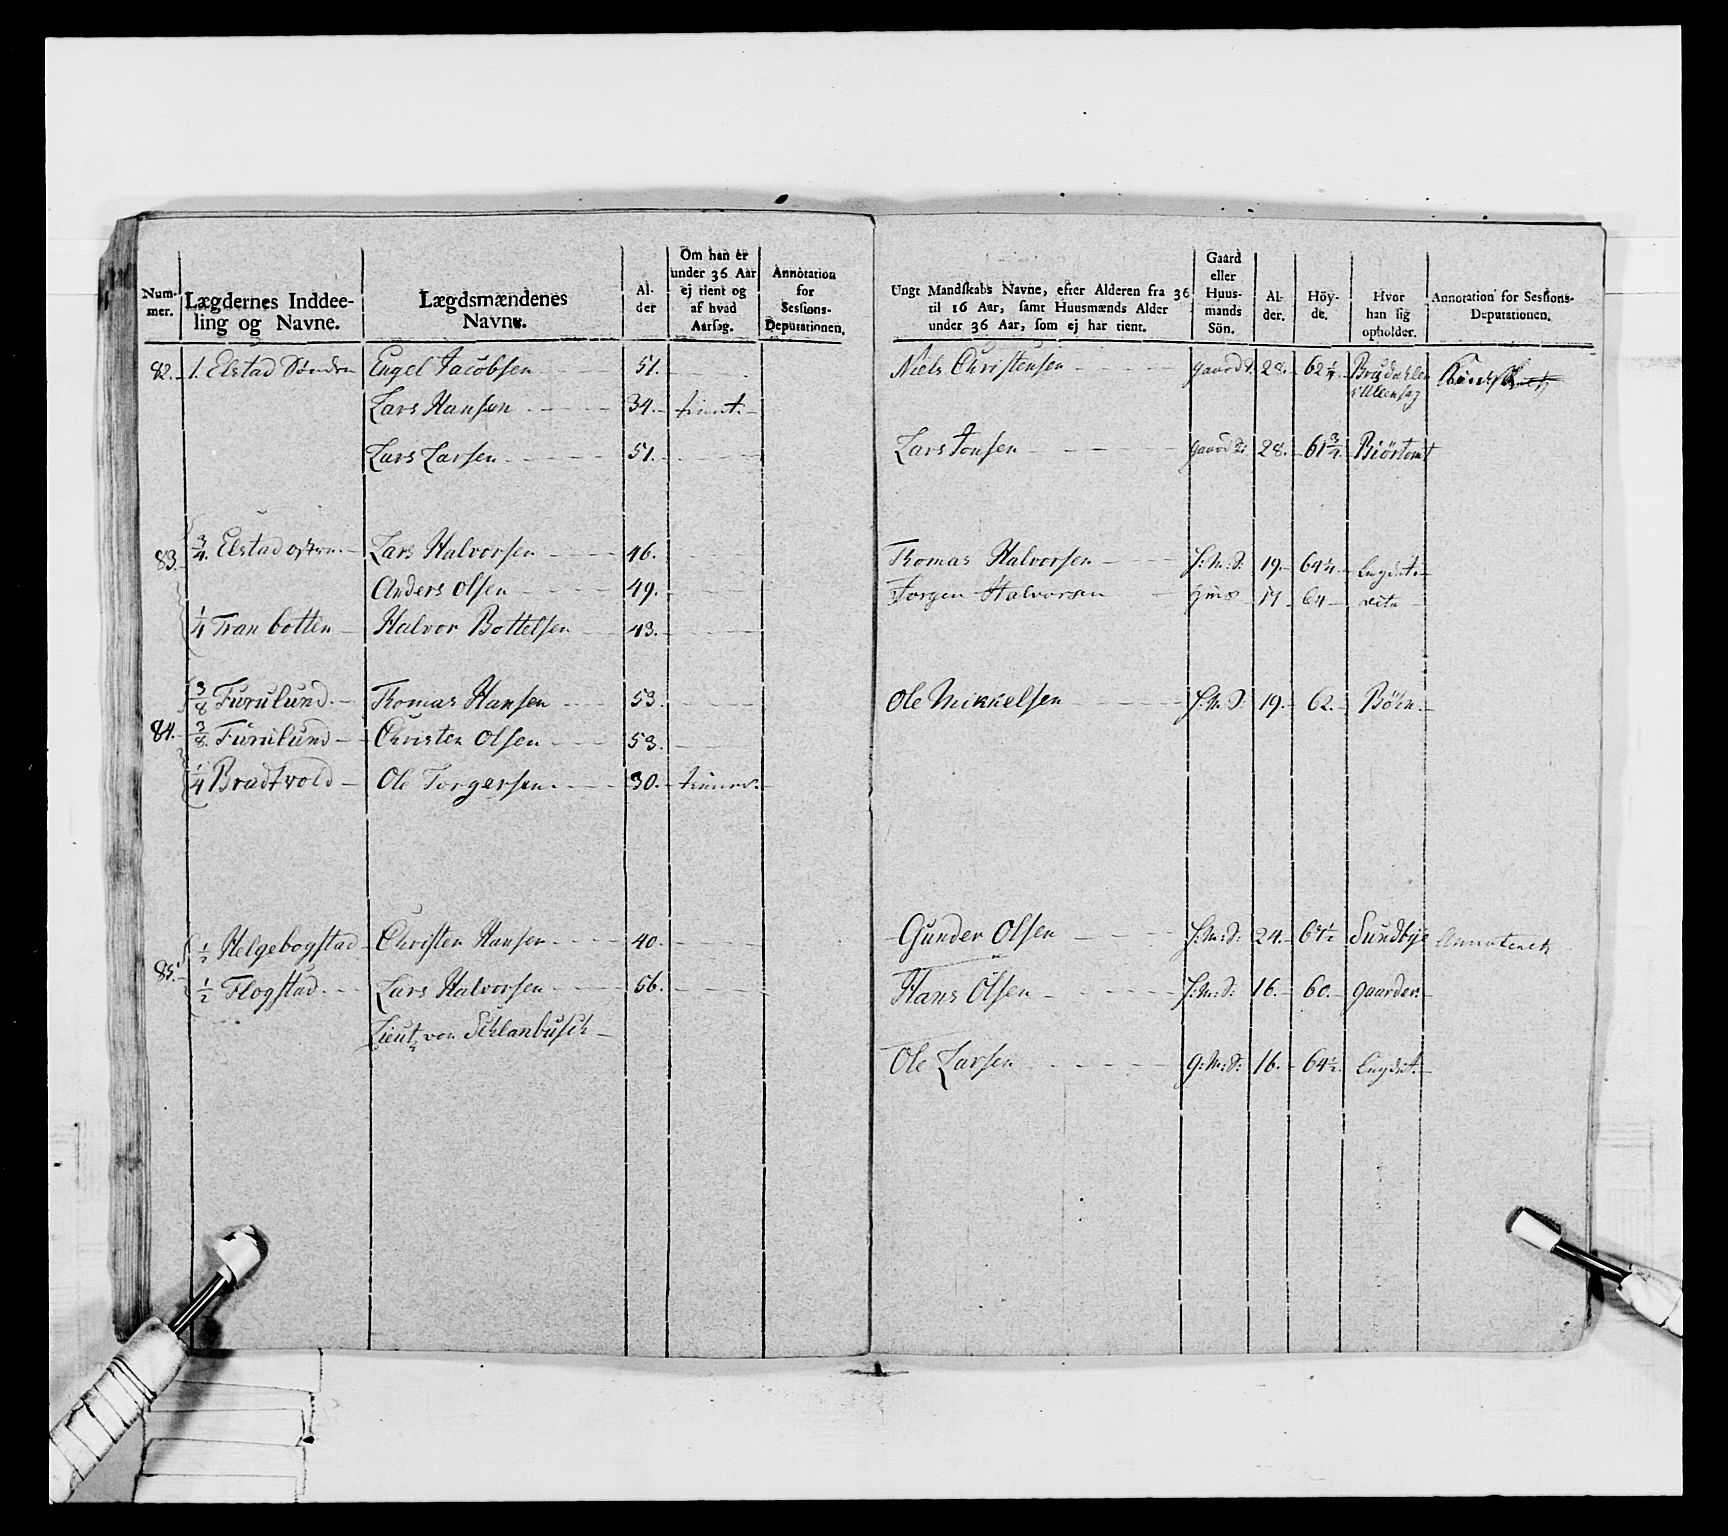 Num-
mer.
Lægdernes Inddee-
ling og Navne.
Lægdsmændenes
Navne.
Al-
der
Om han er
under 36 Aar
ej tient og
af hvad
Aarsag.
Annotation
for
Sessions-
Deputationen.
Ungt Mandskabs Navne, efter Alderen fra 36
til 16 Aar, samt Huusmænds Alder
under 36 Aar, som ej har tient.
Gaard
eller
Huus-
mands
Sön.
Al-
der.
Höy-
de.
Hvor
han sig
opholder.
Annotation for Sessions-
Deputationen.
82. 1. Elstad Söndre Engel Jacobsen 51. Niels Christensen gaard 28. 62 1/4 Brudahlen
i Ullensag
Lars Hansen 34. tient.
Lars Larsen 51. Lars Jonsen gaard 28. 61 3/4
83. 3/4 Elstad östre Lars Halvorsen 46. Thomas Halvorsen H:M:S: 19. 64 1/4 Lægdet.
Anders Olsen 49. Jorgen Halvorsen 17 64 dito
1/4 Tranbotten Halvor Bottelsen 43.
3/8 Furulund Thomas Hansen 53. Ole Mikkelsen H:M:S: 19. 62. Böhn.
84. 3/8 Furulund Christen Olsen 53.
1/4 Bradtvold Ole Torgersen 30.
1/2 Helgebogstad Christen Hansen 40. Gunder Olsen H:M:S: 24. 64 1/2 Sundbye
85. 1/2 Flogstad Lars Halvorsen 56. Hans Olsen H:M:S: 16. 60. gaarder.
Lieut. von Schlanbusch
Ole Larsen G:M:S: 16. 64 1/2 Lægdet.